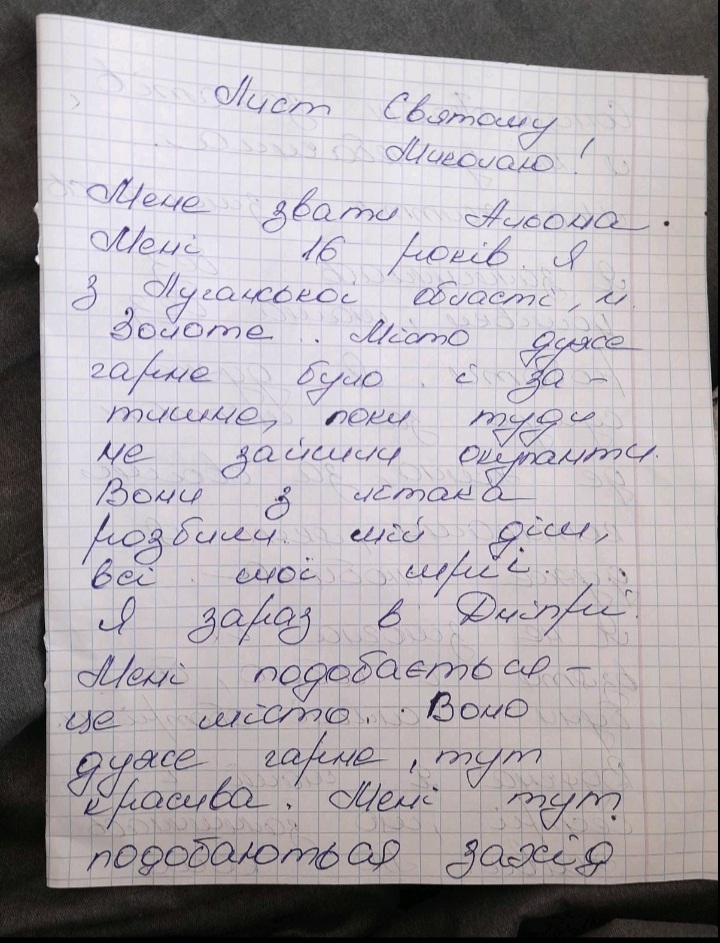 Лист Святому
Миколаю!
Мене звати Альона.
Мені 16 років. Я
з Луганської області, м.
Золоте. Місто дуже
гарне було і за-
тишне, поки туди
не зайшли окупанти.
Вони з літака
розбили мій дім,
всі мої мрії.
Я зараз в Дніпрі.
Мені подобається -
це місто. Воно
дуже гарне, тут
красива. Мені тут
подобаються захід